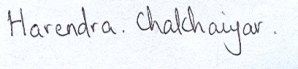 Harendra. Chakhaiyar.